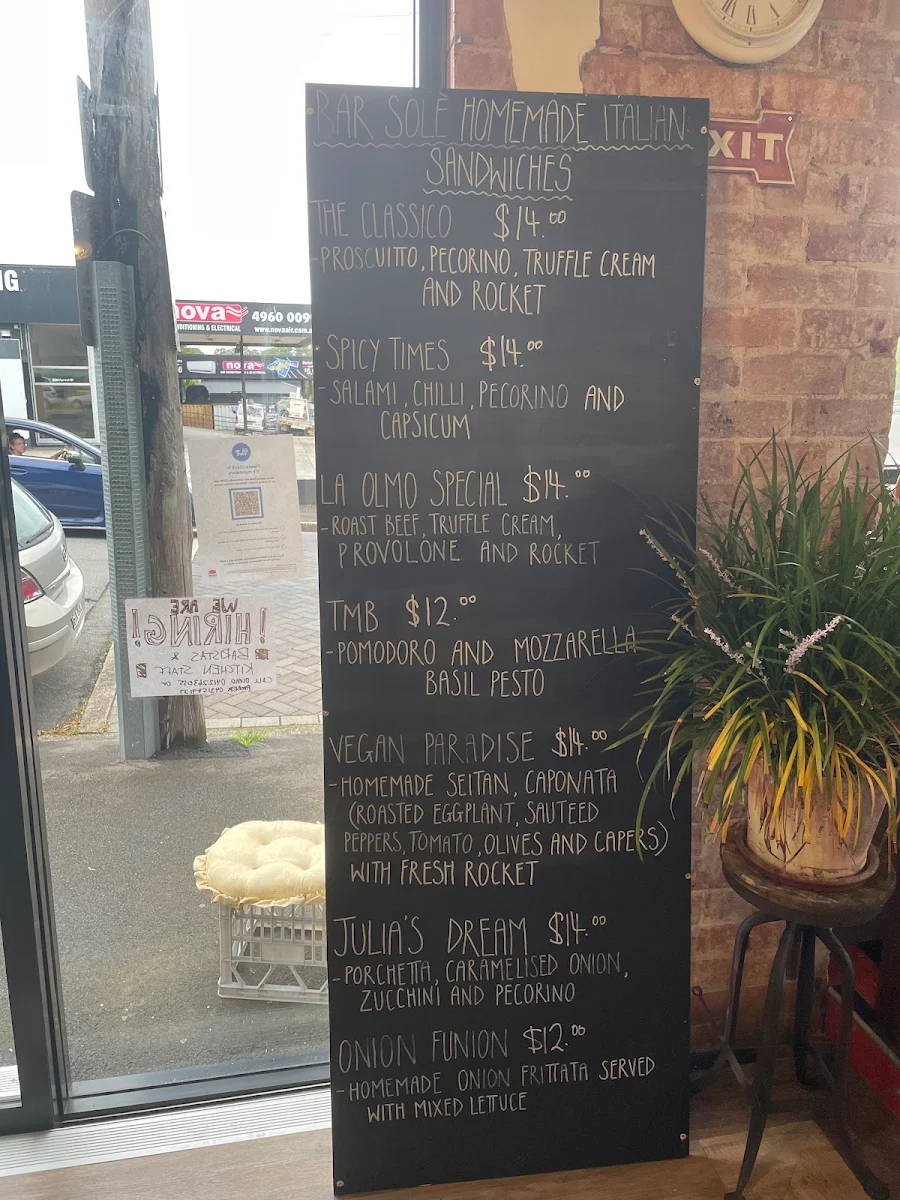 BAR SOLÈ HOMEMADE ITALIAN
SANDWICHES
THE CLASSICO $14.00
-PROSCUITTO, PECORINO, TRUFFLE CREAM
AND ROCKET
SPICY TIMES $14.00
-SALAMI, CHILLI, PECORINO AND
CAPSICUM
LA OLMO SPECIAL $14.00
-ROAST BEEF, TRUFFLE CREAM,
PROVOLONE AND ROCKET
TMB $12.00
-POMODORO AND MOZZARELLA
BASIL PESTO
VEGAN PARADISE $14.00
-HOMEMADE SEITAN, CAPONATA
(ROASTED EGGPLANT, SAUTEED
PEPPERS, TOMATO, OLIVES AND CAPERS)
WITH FRESH ROCKET
JULIA'S DREAM $14.00
-PORCHETTA, CARAMELISED ONION,
ZUCCHINI AND PECORINO
ONION FUNION $12.00
-HOMEMADE ONION FRITTATA SERVED
WITH MIXED LETUCE
XIT
NG
nova 4960 009
DITIONING & ELECTRICAL www.novaair.com.a
nova
WE ARE
HIRING!
BARISTAS &
KITCHEN STAFF